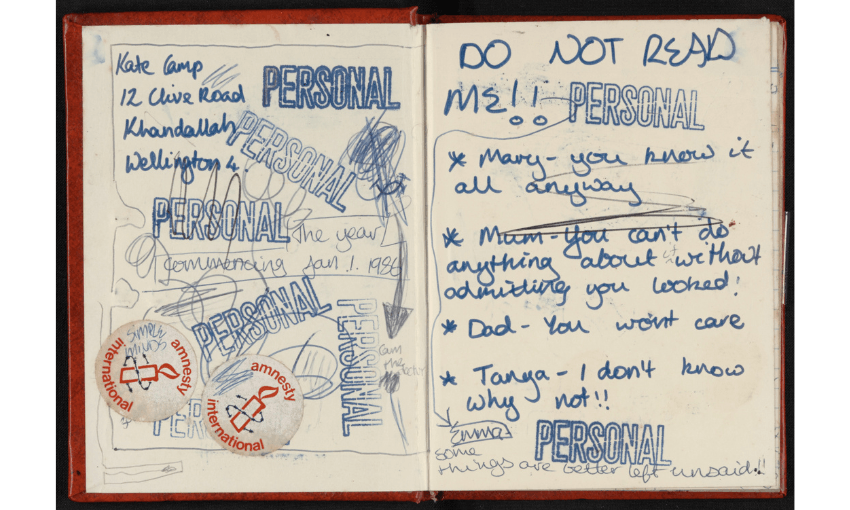 Kate Camp
12 Clive Road
Khandallah
Wellington 4.
PERSONAL
PERSONAL
PERSONAL
The year
commencing Jan. 1. 1986
PERSONAL
PERSONAL
amnesty
international
amnesty
international
DO NOT READ
ME!!
PERSONAL
* Mary - you know it
all anyway
* Mum - You can't do
anything about it without
admiding you looked!
* Dad - You won't care
* Tanya - I don't know
why not!!
Emma-
some
things are better left unsaid!!
PERSONAL